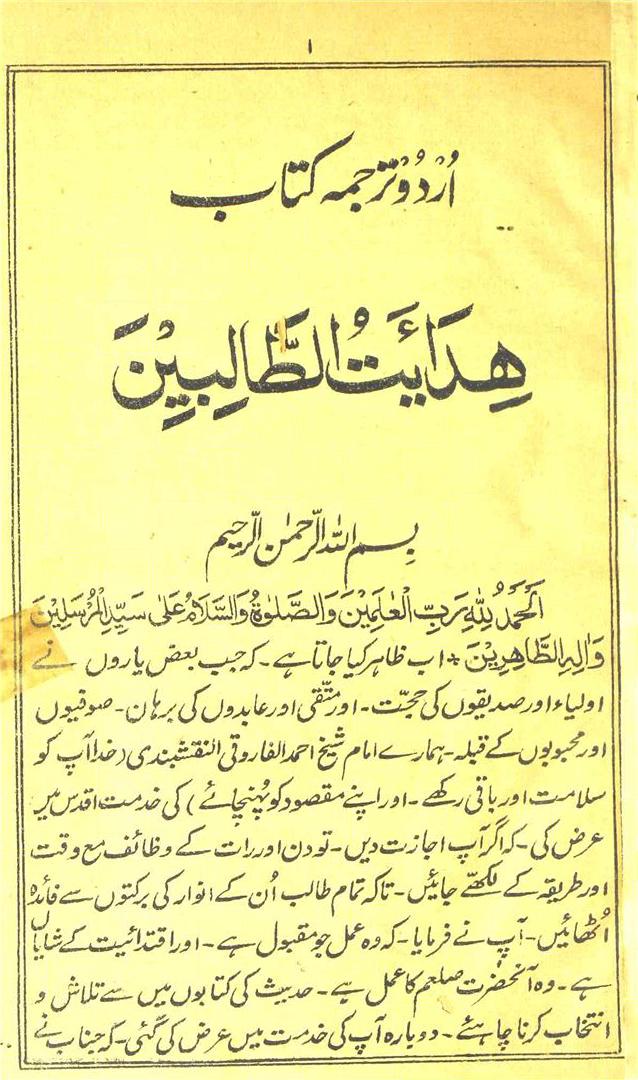 ۱
اُردُو ترجمہ کتاب
ھِدَائَتُ الطَّالِبِیْنَ
بِسم اللہ الرّحمٰن الرّحیم
اَلْحَمْدُ لِلّٰہِ رَبِّ الْعٰلَمِیْنَ وَالصَّلٰوۃُ وَالسَّلَامُ عَلٰی سَیِّدِ الْمُرْسَلِیْنَ
وَاٰلِہِ الطَّاھِرِیْنَ * اب ظاہر کیا جاتا ہے۔ کہ جب بعض یاروں نے
اولیاء اور صدیقوں کی حجّت۔ اور متّقی اور عابدوں کی برہان۔ صوفیوں
اور محبوبوں کے قبلہ۔ ہمارے امام شیخ احمد الفاروقی النقشبندی (خدا آپ کو
سلامت اور باقی رکھے۔ اور اپنے مقصود کو پُہنچائے) کی خدمت اقدس میں
عرض کی۔ کہ اگر آپ اجازت دیں۔ تو دن اور رات کے وظائف مع وقت
اور طریقہ کے لکھے جائیں۔ تاکہ تمام طالب اُن کے انوار کی برکتوں سے فائدہ
اُٹھائیں۔ آپ نے فرمایا۔ کہ وہ عمل جو مقبول ہے۔ اور اقتدائیت کے شایاں
ہے۔ وہ آنحضرت صلعم کا عمل ہے۔ حدیث کی کتابوں میں سے تلاش و
انتخاب کرنا چاہئے۔ دوبارہ آپ کی خدمت میں عرض کی گئی۔ کہ جناب نے